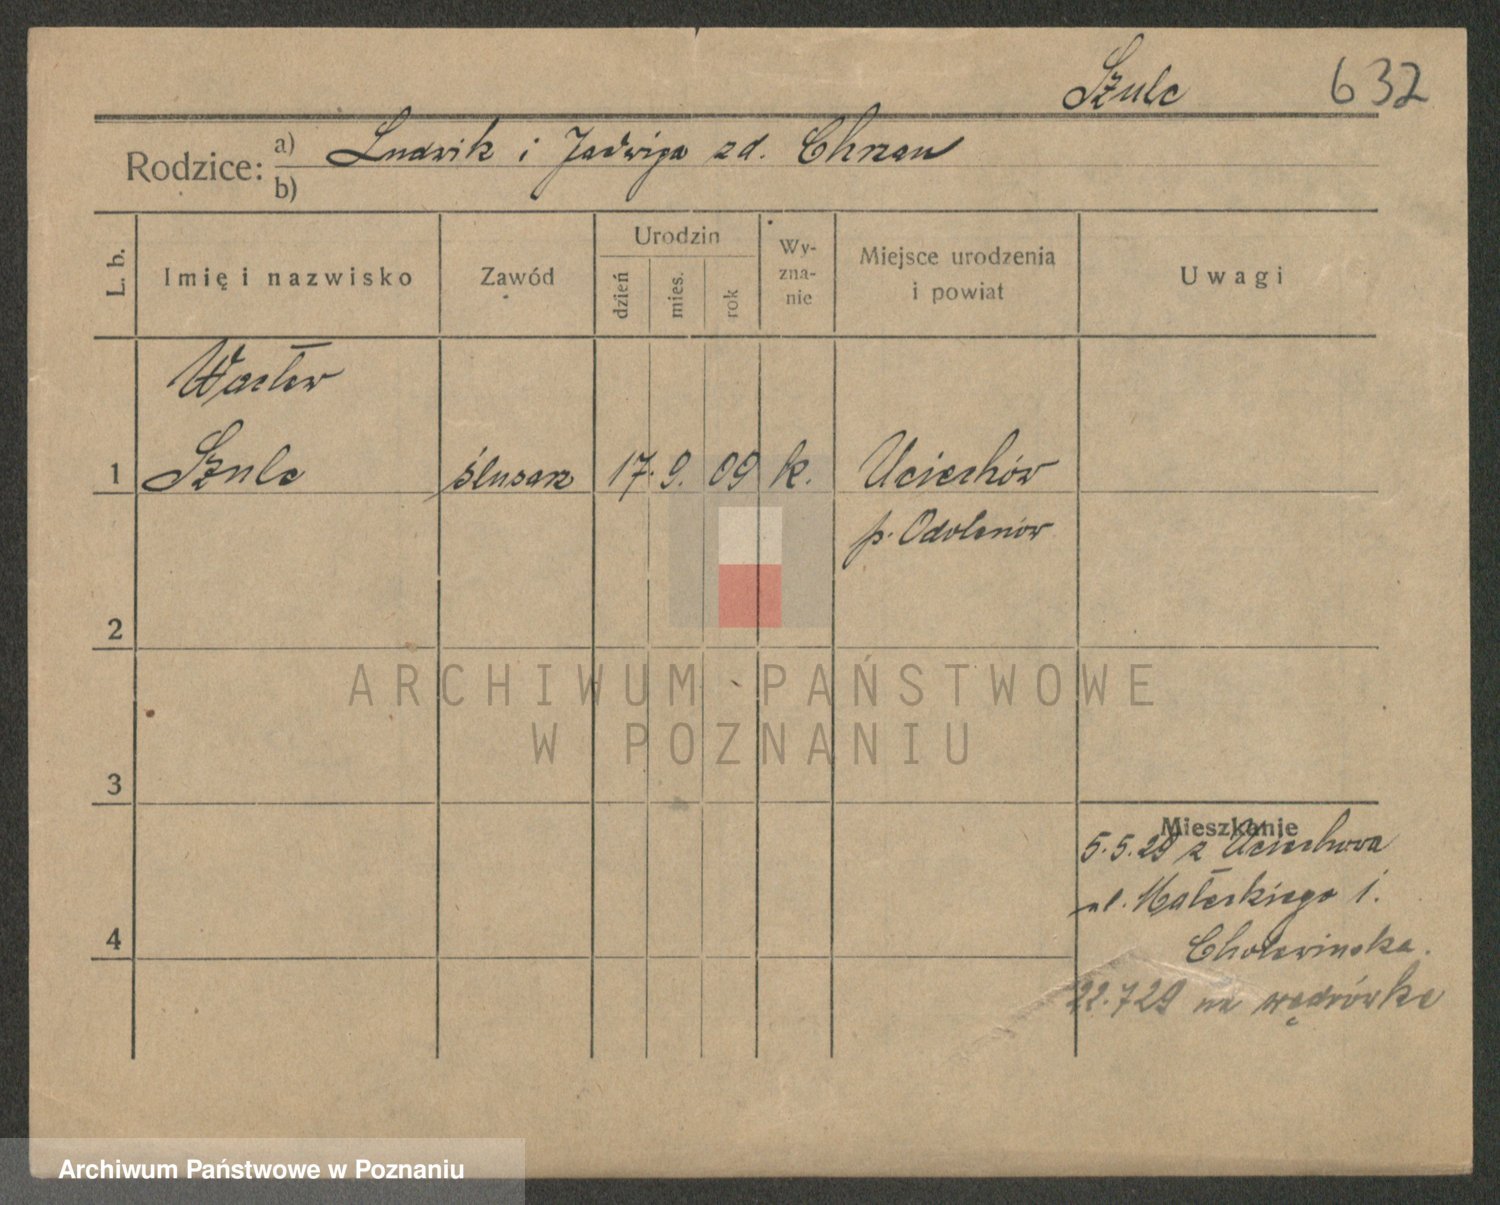 Szulc 632
Rodzice: a) Ludwik i Jadwiga zd. Chrzan
b)
L. b. Imię i nazwisko Zawód Urodzin dzień mies. rok Wy-zna-nie Miejsce urodzenia i powiat Uwagi
Wacław
1 Szulc ślusarz 17. 9. 09 k. Uciechów
p. Odolanów
2
ARCHIWUM PAŃSTWOWE
W POZNANIU
3
Mieszkanie
5.5.29 z Uciechowa
ul. Małeckiego 1.
4
Cholewinska.
22.7 29 na wędrówkę
Archiwum Państwowe w Poznaniu